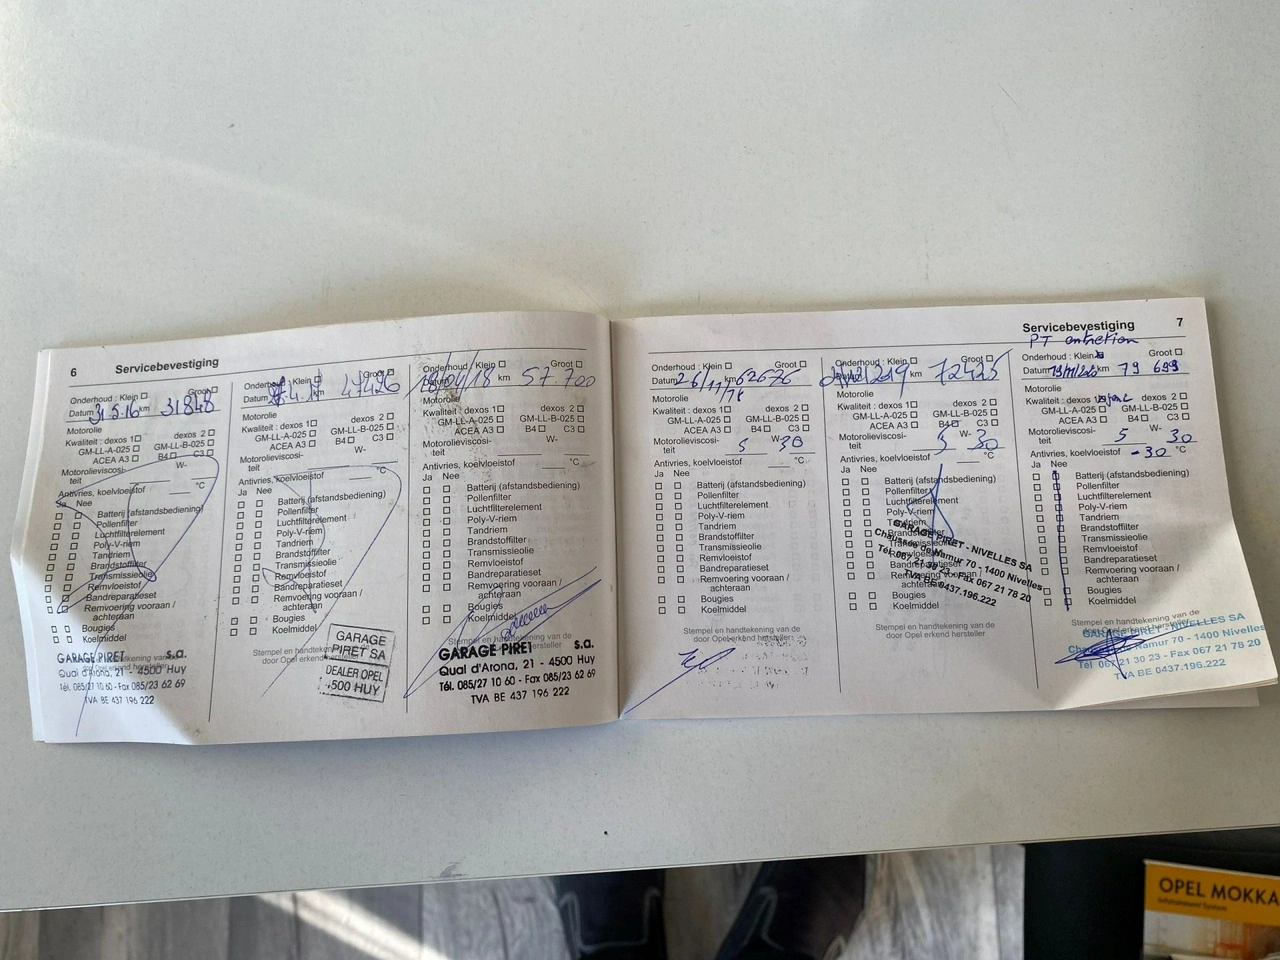 6 Servicebevestiging
Onderhoud : Klein Groot
Datum 31.5.16 km 31848
Motorolie
Kwaliteit : dexos 1 dexos 2
GM-LL-A-025 GM-LL-B-025
ACEA A3 B4 C3
Motorolieviscosi-
teit W-
Antivries, koelvloeistof °C
Ja Nee
Batterij (afstandsbediening)
Pollenfilter
Luchtfilterelement
Poly-V-riem
Tandriem
Brandstoffilter
Transmissieolie
Remvloeistof
Bandreparatieset
Remvoering vooraan /
achteraan
Bougies
Koelmiddel
GARAGE PIRET s.a.
Quai d'Arona, 21 - 4500 Huy
Tél. 085/27 10 60 - Fax 085/23 62 69
TVA BE 437 196 222
Onderhoud : Klein Groot
Datum km 47426
Motorolie
Kwaliteit : dexos 1 dexos 2
GM-LL-A-025 GM-LL-B-025
ACEA A3 B4 C3
Motorolieviscosi-
teit W-
Antivries, koelvloeistof °C
Ja Nee
Batterij (afstandsbediening)
Pollenfilter
Luchtfilterelement
Poly-V-riem
Tandriem
Brandstoffilter
Transmissieolie
Remvloeistof
Bandreparatieset
Remvoering vooraan /
achteraan
Bougies
Koelmiddel
Stempel en handtekening van de
door Opel erkend hersteller
GARAGE
PIRET SA
DEALER OPEL
4500 HUY
Onderhoud : Klein Groot
Datum 18/04/18 km 57.700
Motorolie
Kwaliteit : dexos 1 dexos 2
GM-LL-A-025 GM-LL-B-025
ACEA A3 B4 C3
Motorolieviscosi-
teit W-
Antivries, koelvloeistof °C
Ja Nee
Batterij (afstandsbediening)
Pollenfilter
Luchtfilterelement
Poly-V-riem
Tandriem
Brandstoffilter
Transmissieolie
Remvloeistof
Bandreparatieset
Remvoering vooraan /
achteraan
Bougies
Koelmiddel
Stempel en handtekening van de
GARAGE PIRET s.a.
Quai d'Arona, 21 - 4500 Huy
Tél. 085/27 10 60 - Fax 085/23 62 69
TVA BE 437 196 222
Servicebevestiging 7
Onderhoud : Klein Groot
Datum 26/11/18 km 62676
Motorolie
Kwaliteit : dexos 1 dexos 2
GM-LL-A-025 GM-LL-B-025
ACEA A3 B4 C3
Motorolieviscosi-
teit 5 W- 30
Antivries, koelvloeistof °C
Ja Nee
Batterij (afstandsbediening)
Pollenfilter
Luchtfilterelement
Poly-V-riem
Tandriem
Brandstoffilter
Transmissieolie
Remvloeistof
Bandreparatieset
Remvoering vooraan /
achteraan
Bougies
Koelmiddel
Stempel en handtekening van de
door Opel erkend hersteller
Onderhoud : Klein Groot
Datum km 72425
Motorolie
Kwaliteit : dexos 1 dexos 2
GM-LL-A-025 GM-LL-B-025
ACEA A3 B4 C3
Motorolieviscosi-
teit 5 W- 30
Antivries, koelvloeistof °C
Ja Nee
Batterij (afstandsbediening)
Pollenfilter
Luchtfilterelement
Poly-V-riem
Tandriem
Brandstoffilter
Transmissieolie
Remvloeistof
Bandreparatieset
Remvoering vooraan /
achteraan
Bougies
Koelmiddel
GARAGE PIRET - NIVELLES SA
Chaussée de Namur 70 - 1400 Nivelles
Tél. 067 21 30 23 - Fax 067 21 78 20
TVA BE 0437.196.222
Stempel en handtekening van de
door Opel erkend hersteller
PT entretien
Onderhoud : Klein Groot
Datum km 79 693
Motorolie
Kwaliteit : dexos 1 dexos 2
GM-LL-A-025 GM-LL-B-025
ACEA A3 B4 C3
Motorolieviscosi-
teit 5 W- 30
Antivries, koelvloeistof -30 °C
Ja Nee
Batterij (afstandsbediening)
Pollenfilter
Luchtfilterelement
Poly-V-riem
Tandriem
Brandstoffilter
Transmissieolie
Remvloeistof
Bandreparatieset
Remvoering vooraan /
achteraan
Bougies
Koelmiddel
Stempel en handtekening van de
GARAGE PIRET - NIVELLES SA
Chaussée de Namur 70 - 1400 Nivelles
Tél 067 21 30 23 - Fax 067 21 78 20
TVA BE 0437.196.222
OPEL MOKKA
Infotainment System